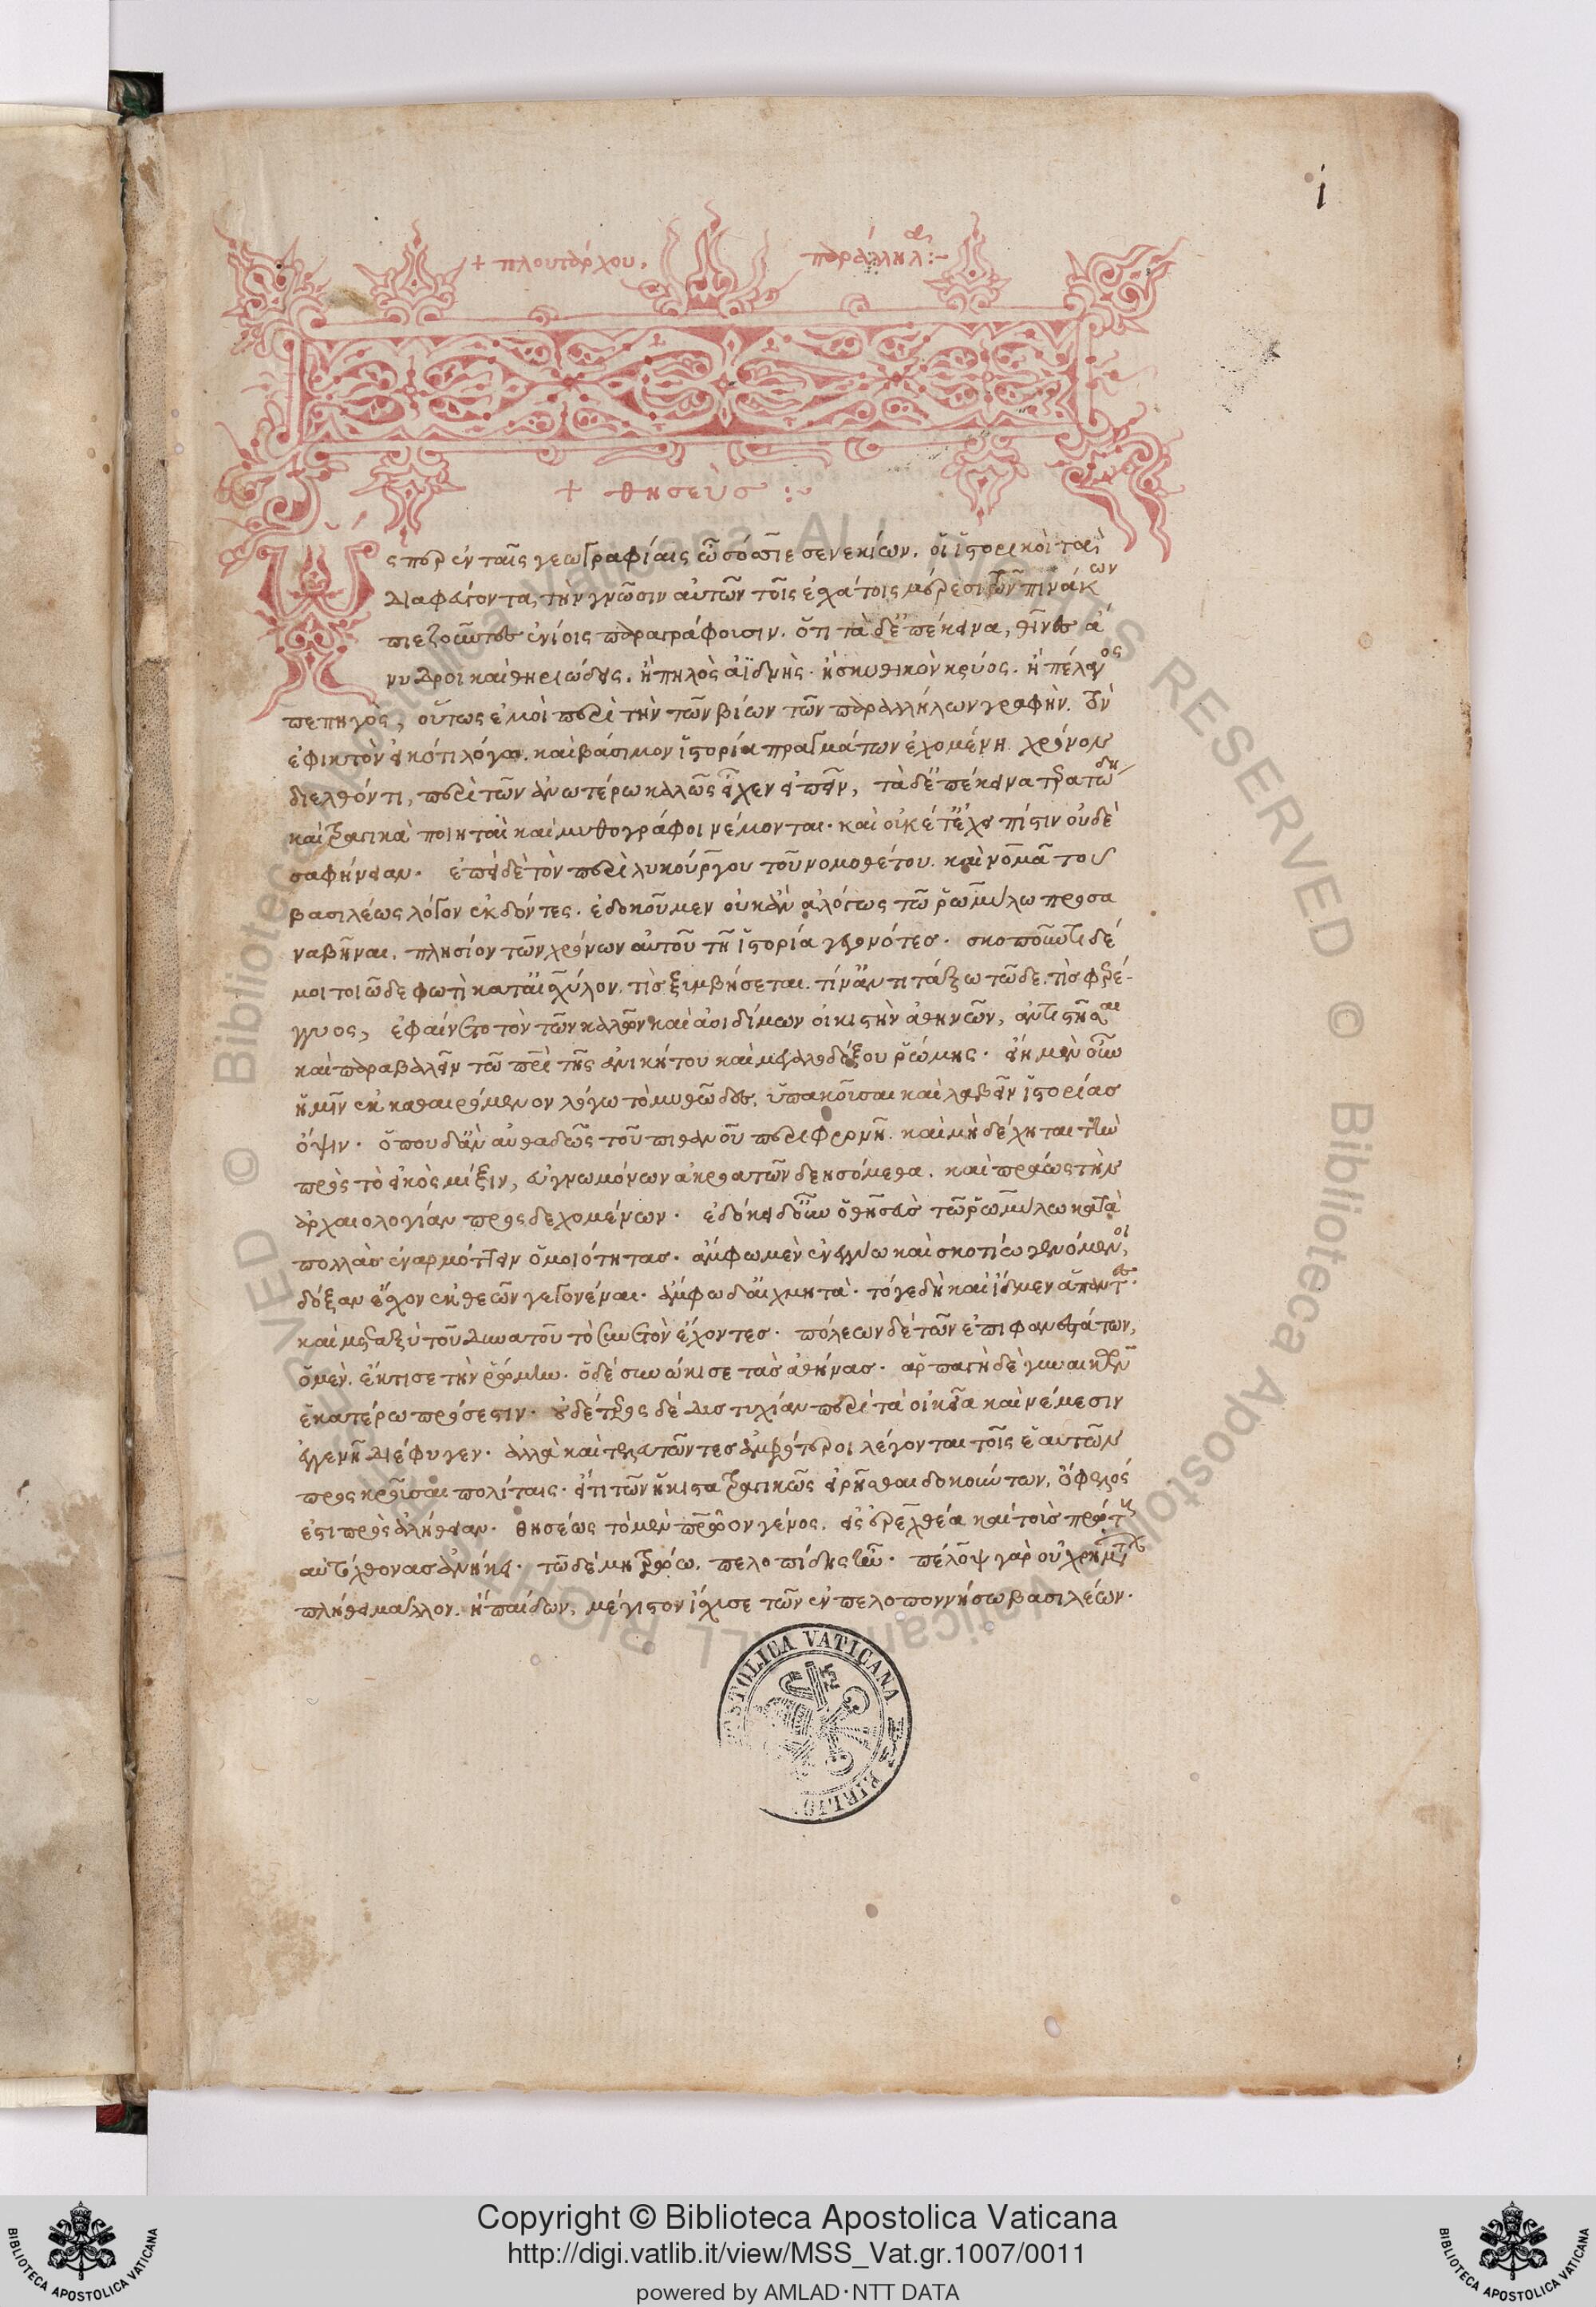 i
+ πλουτάρχου. παράλληλα :-
+ θησεύς :~
Ὥσπερ ἐν ταῖς γεωγραφίαις ὦ σόσσιε σενεκίων. οἱ ἱστορικοὶ τὰ
διαφεύγοντα, τὴν γνῶσιν αὐτῶν τοῖς ἐσχάτοις μέρεσι τῶν πινάκων
πιεζοῦντες ἐνίοις παραγράφουσιν. ὅτι τὰ δ' ἐπέκεινα, θῖνες ἄ
νυδροι καὶ θηριώδεις. ἢ πηλὸς ἀϊδνὴς. ἢ σκυθικὸν κρύος. ἢ πέλαγος
πεπηγὸς, οὕτως ἐμοὶ περὶ τὴν τῶν βίων τῶν παραλλήλων γραφὴν. τὸν
ἐφικτὸν εἰκότι λόγω. καὶ βάσιμον ἱστορία πραγμάτων ἐχομένη. χρόνον
διελθόντι, περὶ τῶν ἀνωτέρω καλῶς εἶχεν εἰπεῖν, τὰ δ' ἐπέκεινα τερατώδη
καὶ τραγικὰ ποιηταὶ καὶ μυθογράφοι νέμονται. καὶ οὐκέτ' ἔχει πίστιν οὐδὲ
σαφήνειαν. ἐπεὶ δὲ τὸν περὶ λυκούργου τοῦ νομοθέτου. καὶ νομᾶ τοῦ
βασιλέως λόγον ἐκδόντες. ἐδοκοῦμεν οὐκ ἂν ἀλόγως τῶ ῥωμύλω προσα
ναβῆναι. πλησίον τῶν χρόνων αὐτοῦ τῆ ἱστορία γεγονότες. σκοποῦντι δέ
μοι τοιῶδε φωτὶ κατ' αἰσχύλον. τὶς ξυμβήσεται. τίν' ἀντιτάξω τῶδε. τὶς φερέ-
γγυος, ἐφαίνετο τὸν τῶν καλῶν καὶ ἀοιδίμων οἰκιστὴν ἀθηνῶν, ἀντιστῆσαι
καὶ παραβαλεῖν τῶ πατρὶ τῆς ἀνικήτου καὶ μεγαλοδόξου ῥώμης. εἴη μὲν οὖν
ἡμῖν ἐκκαθαιρόμενον λόγω τὸ μυθῶδες. ὑπακοῦσαι καὶ λαβεῖν ἱστορίας
ὄψιν. ὅπου δ' ἂν αὐθαδῶς τοῦ πιθανοῦ περιφρονῆ. καὶ μὴ δέχηται τὴν
πρὸς τὸ εἰκὸς μίξιν, εὐγνωμόνων ἀκροατῶν δεησόμεθα. καὶ πράως τὴν
ἀρχαιολογίαν προσδεχομένων. ἐδόκει δ' οὖν ὁ θησεὺς τῶ ῥωμύλω κατὰ
πολλὰς ἐναρμόττειν ὁμοιότητας. ἄμφω μὲν ἀνεγγύω καὶ σκοτίω γενόμενοι,
δόξαν ἔσχον ἐκ θεῶν γεγονέναι. ἄμφω δ' αἰχμητὰ. τό γε δὴ καὶ ἴδμεν ἅπαντες.
καὶ μεταξὺ τοῦ δυνατοῦ τὸ συνετὸν ἔχοντες. πόλεων δὲ τῶν ἐπιφανεστάτων,
ὁ μὲν. ἔκτισε τὴν ῥώμην. ὁ δὲ συνώκισε τὰς ἀθήνας. ἁρπαγὴ δὲ γυναικῶν
ἑκατέρω πρόσεστιν. οὐδέτερος δὲ δυστυχίαν περὶ τὰ οἰκεῖα καὶ νέμεσιν
ἐγγενῆ διέφυγεν. ἀλλὰ καὶ τελευτῶντες ἀμφότεροι λέγονται τοῖς ἑαυτῶν
προσκροῦσαι πολίταις. εἴ τι τῶν ἥκιστα τραγικῶς εἰρῆσθαι δοκούντων. ὄφελός
ἐστι πρὸς ἀλήθειαν. θησέως τὸ μὲν πατρῶον γένος. εἰς ἐρεχθέα καὶ τοὺς πρώτους
αὐτόχθονας ἀνήκει. τῶ δὲ μητρώω. πελοπίδης ἦν. πέλοψ γὰρ οὐ χρημάτων
πλήθει μᾶλλον. ἢ παίδων, μέγιστον ἴσχυσε τῶν ἐν πελοποννήσω βασιλέων.
APOSTOLICA VATICANA BIBLIO
Copyright © Biblioteca Apostolica Vaticana
http://digi.vatlib.it/view/MSS_Vat.gr.1007/0011
powered by AMLAD·NTT DATA